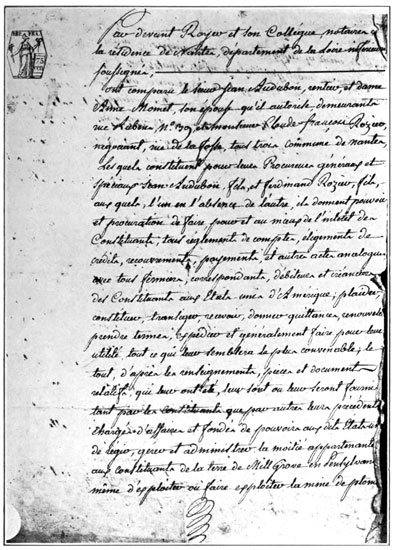 REP. FRA.
Par devant Rozier et son Collègue notaires à
la résidence de Nantes, département de la Loire inférieure
soussignés,
Ont comparu le sieur Jean Audubon, rentier, et dame
Anne Moinet, son épouse qu'il autorise, demeurants
rue Rubens No. 39, et monsieur Claude François Rozier,
négociant, rue de la fosse, tous trois commune de nantes,
Lesquels constituent pour leurs Procureurs généraux et
spéciaux Jean Audubon, fils, et ferdinand Rozier, fils,
aux quels, l'un en l'absence de l'autre, ils donnent pouvoir
et procuration de faire pour et au nom de l'intérêt des
Constituants, tous règlements de comptes, élégements de
crédits, recouvrements, payements et autres actes analogues
avec tous fermiers, correspondants, débiteurs et créanciers
des Constituants aux Etats unis d'Amérique; plaider,
constituer, transiger, recevoir, donner quittance, renouveler
prendre termes, expédier et généralement faire pour leur
utilité tout ce qui leur semblera le plus convenable; le
tout, d'après les enseignements, pièces et documents
relatifs qui leur ont été, leur sont ou leur seront fournis
tant par les Constituants que par autres leurs précédents
chargés d'affaires et fondés de pouvoirs aux dits Etats unis
de régir, gérer et administrer la moitié appartenante
aux constituants de la terre de Mill Grove en Pensylvanie
même d'exploiter ou faire exploiter la mine de plomb